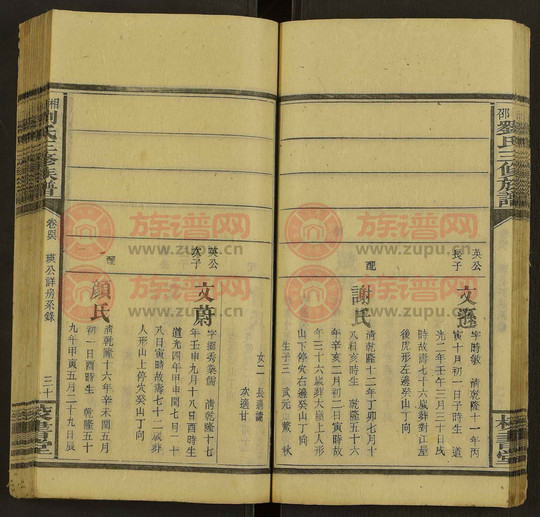 邵劉氏三修族譜
英公長子
文遜
字時敏 清乾隆十一年丙
寅十月初一日子時生 道
光二年壬午三月三十日戌
時故壽七十七歲葬對江屋
後虎形左邊癸山丁向
配
謝氏
清乾隆十二年丁卯七月十
八日亥時生 乾隆五十六
年辛亥二月初二日寅時故
年三十六歲葬大嶺上人形
山下停穴右邊癸山丁向
生子三 武元 戴 秋
女二 長適譚
次適甘
英公次子
文蔚
字 秀業儒 清乾隆十七
年壬申九月十八日酉時生
道光四年甲申閏七月二十
八日寅時故壽七十二歲葬
人形山上停穴癸山丁向
配
顏氏
清乾隆十六年辛未閏五月
初一日酉時生 乾隆五十
九年甲寅五月二十九日辰
湘劉氏三修族譜
瑛公詳房系錄
三十
族谱网
www.zupu.cn
族谱网
www.zupu.cn
族谱网
www.zupu.cn
族谱网
www.zupu.cn